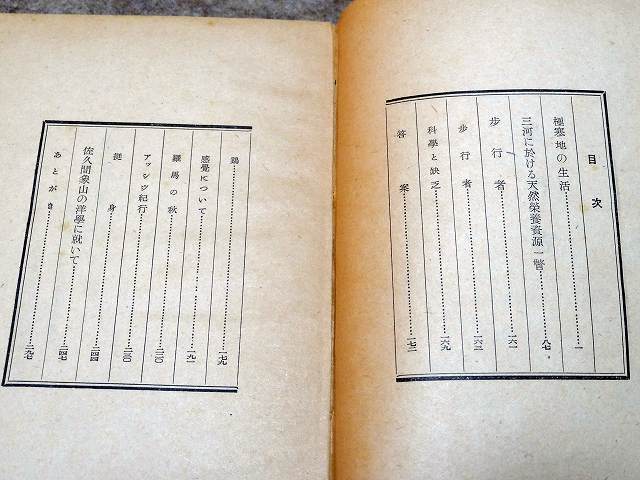 目次
極寒地の生活……一
三河に於ける天然榮養資源一瞥……八七
歩行者……一六一
歩行者……一六三
科學と缺乏……一六九
答案……一七二
鶏……一七九
感覺について……一九一
羅馬の秋……二一〇
アッシジ紀行……二三〇
挺身……二四四
佐久間象山の洋學に就いて……二四七
あとがき……二九七